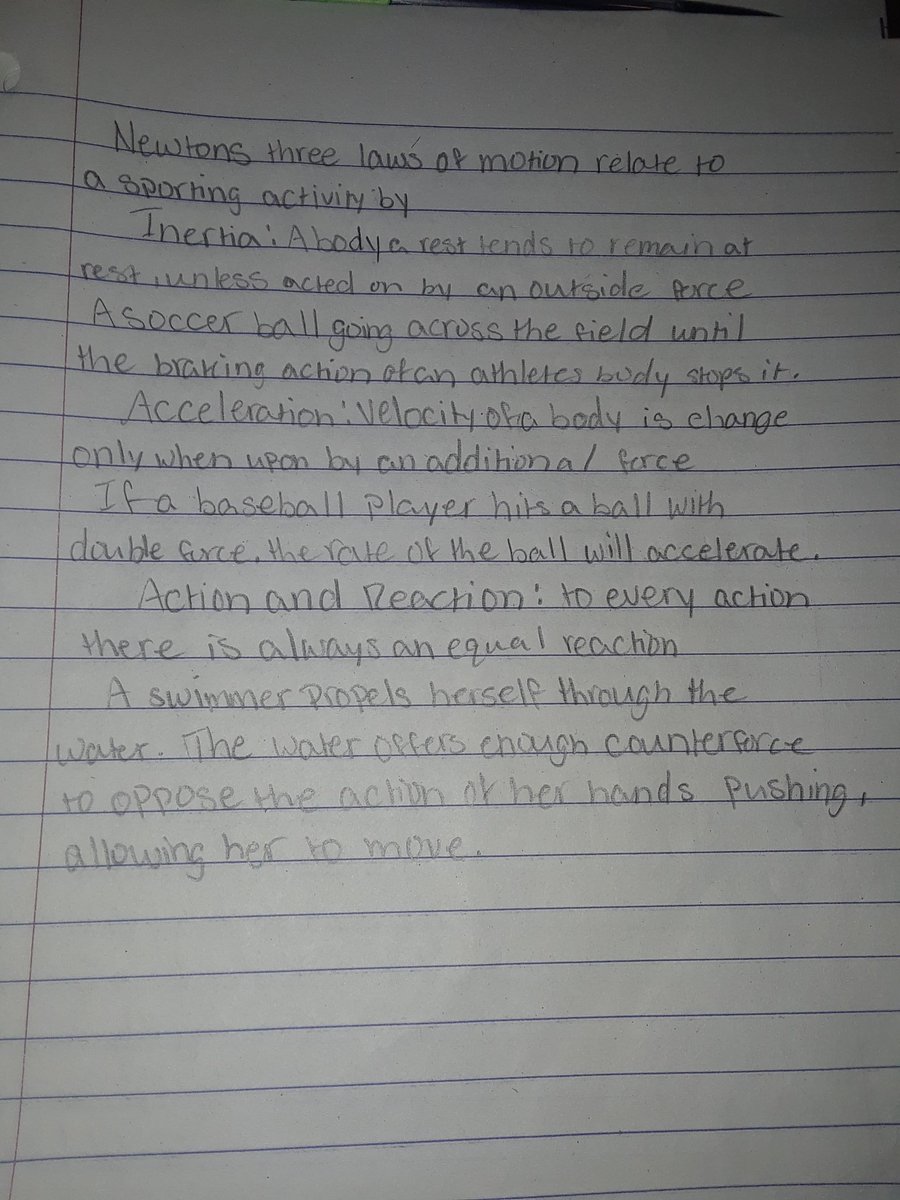 Newtons three laws of motion relate to
a sporting activity by
Inertia: A body a rest tends to remain at
rest, unless acted on by an outside force
A soccer ball going across the field until
the braking action of an athletes body stops it.
Acceleration: Velocity of a body is change
only when upon by an additional force
If a baseball player hits a ball with
double force, the rate of the ball will accelerate.
Action and Reaction: to every action
there is always an equal reaction
A swimmer propels herself through the
water. The water offers enough counterforce
to oppose the action of her hands pushing,
allowing her to move.